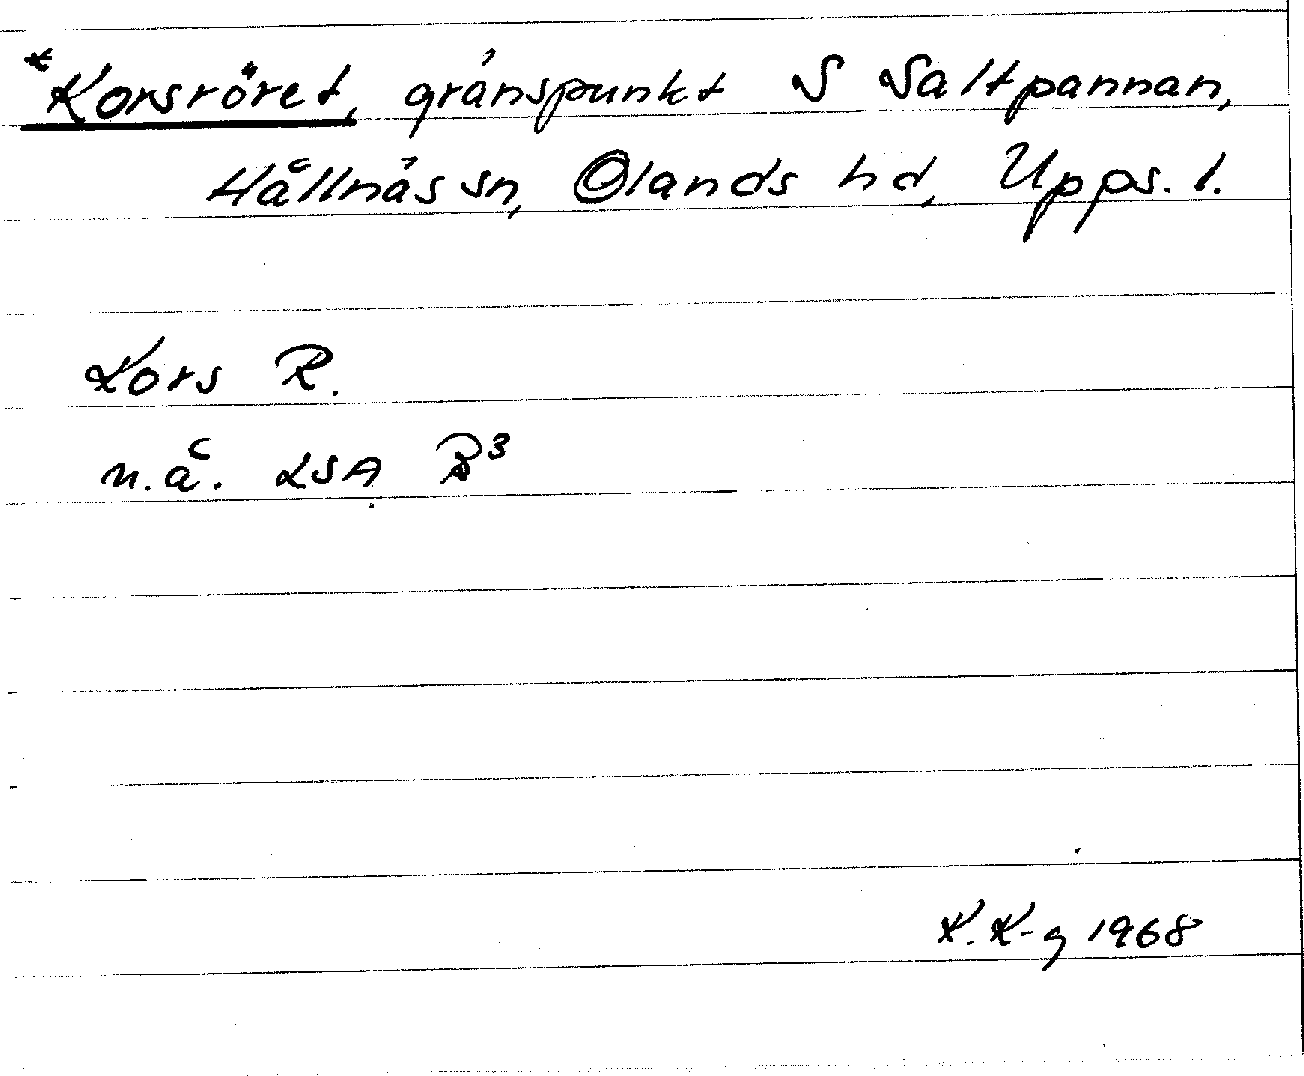 *Korsröret, gränspunkt S Saltpannan,
Hållnäs sn, Olands hd, Upps. l.
Kors R.
n.å. LSA B³
K. K-g 1968